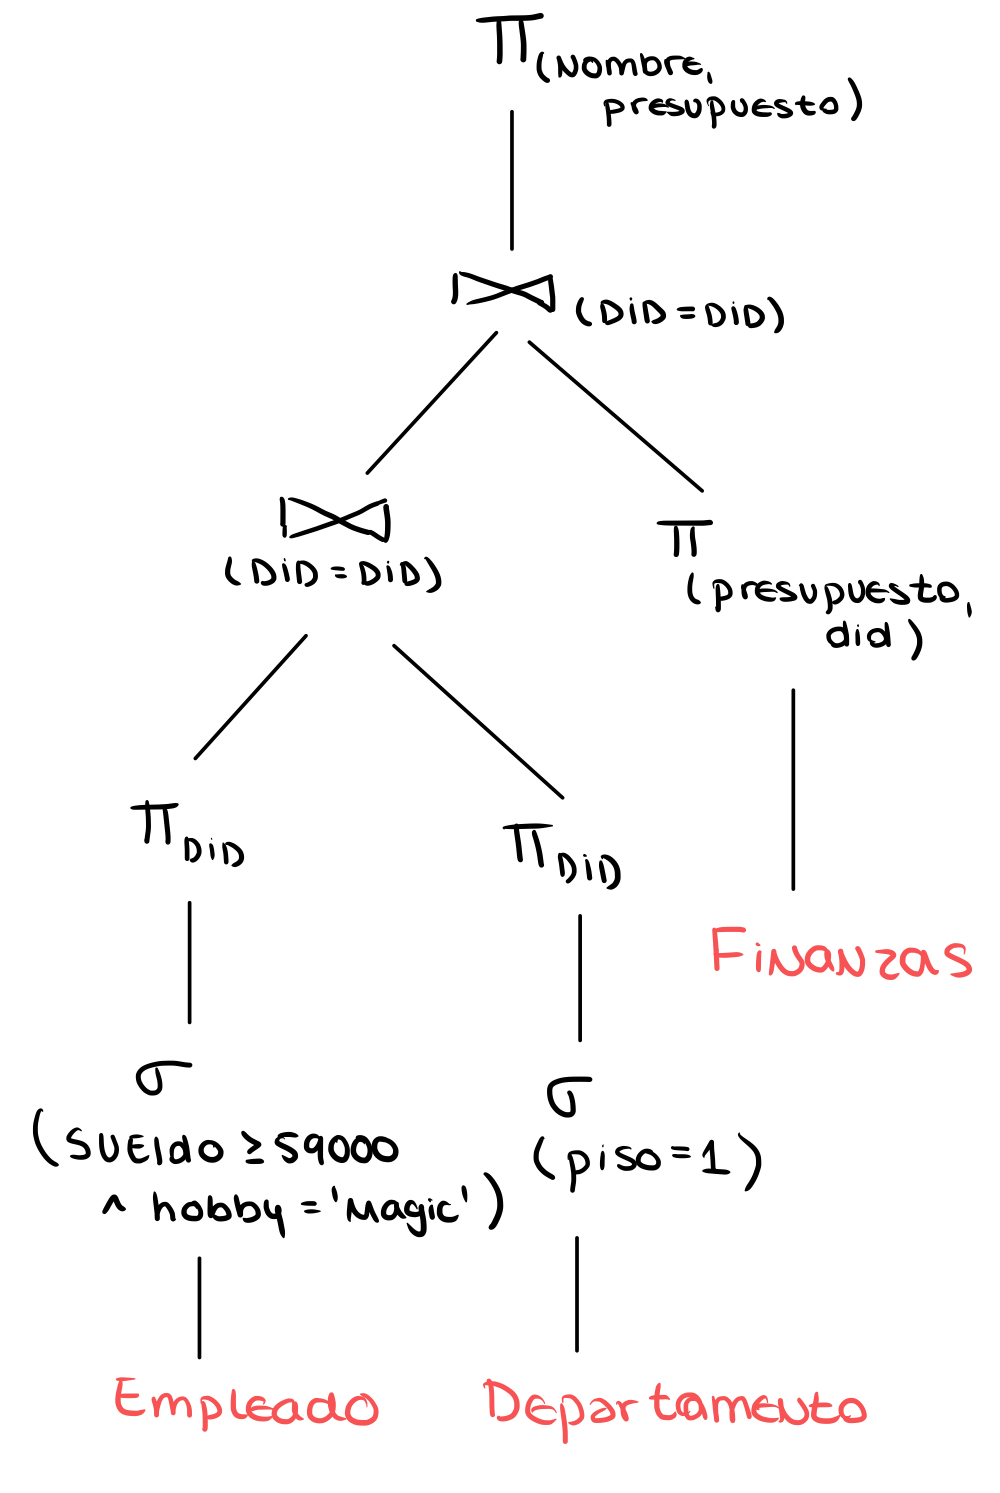 π(Nombre,
presupuesto)
⋈ (DiD = DiD)
⋈
(DiD = DiD)
π
(presupuesto,
did)
π DiD
π DiD
Finanzas
σ
(Sueldo ≥ 59000
^ hobby = 'Magic')
σ
(piso = 1)
Empleado
Departamento